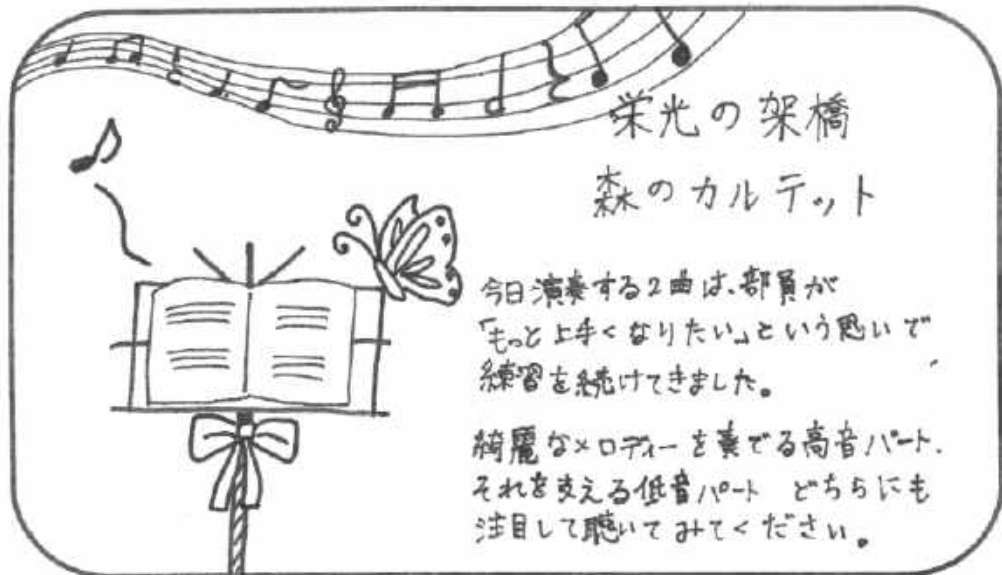 栄光の架橋
森のカルテット
今日演奏する2曲は、部員が
「もっと上手くなりたい」という思いで
練習を続けてきました。
綺麗なメロディーを奏でる高音パート、
それを支える低音パート どちらにも
注目して聴いてみてください。